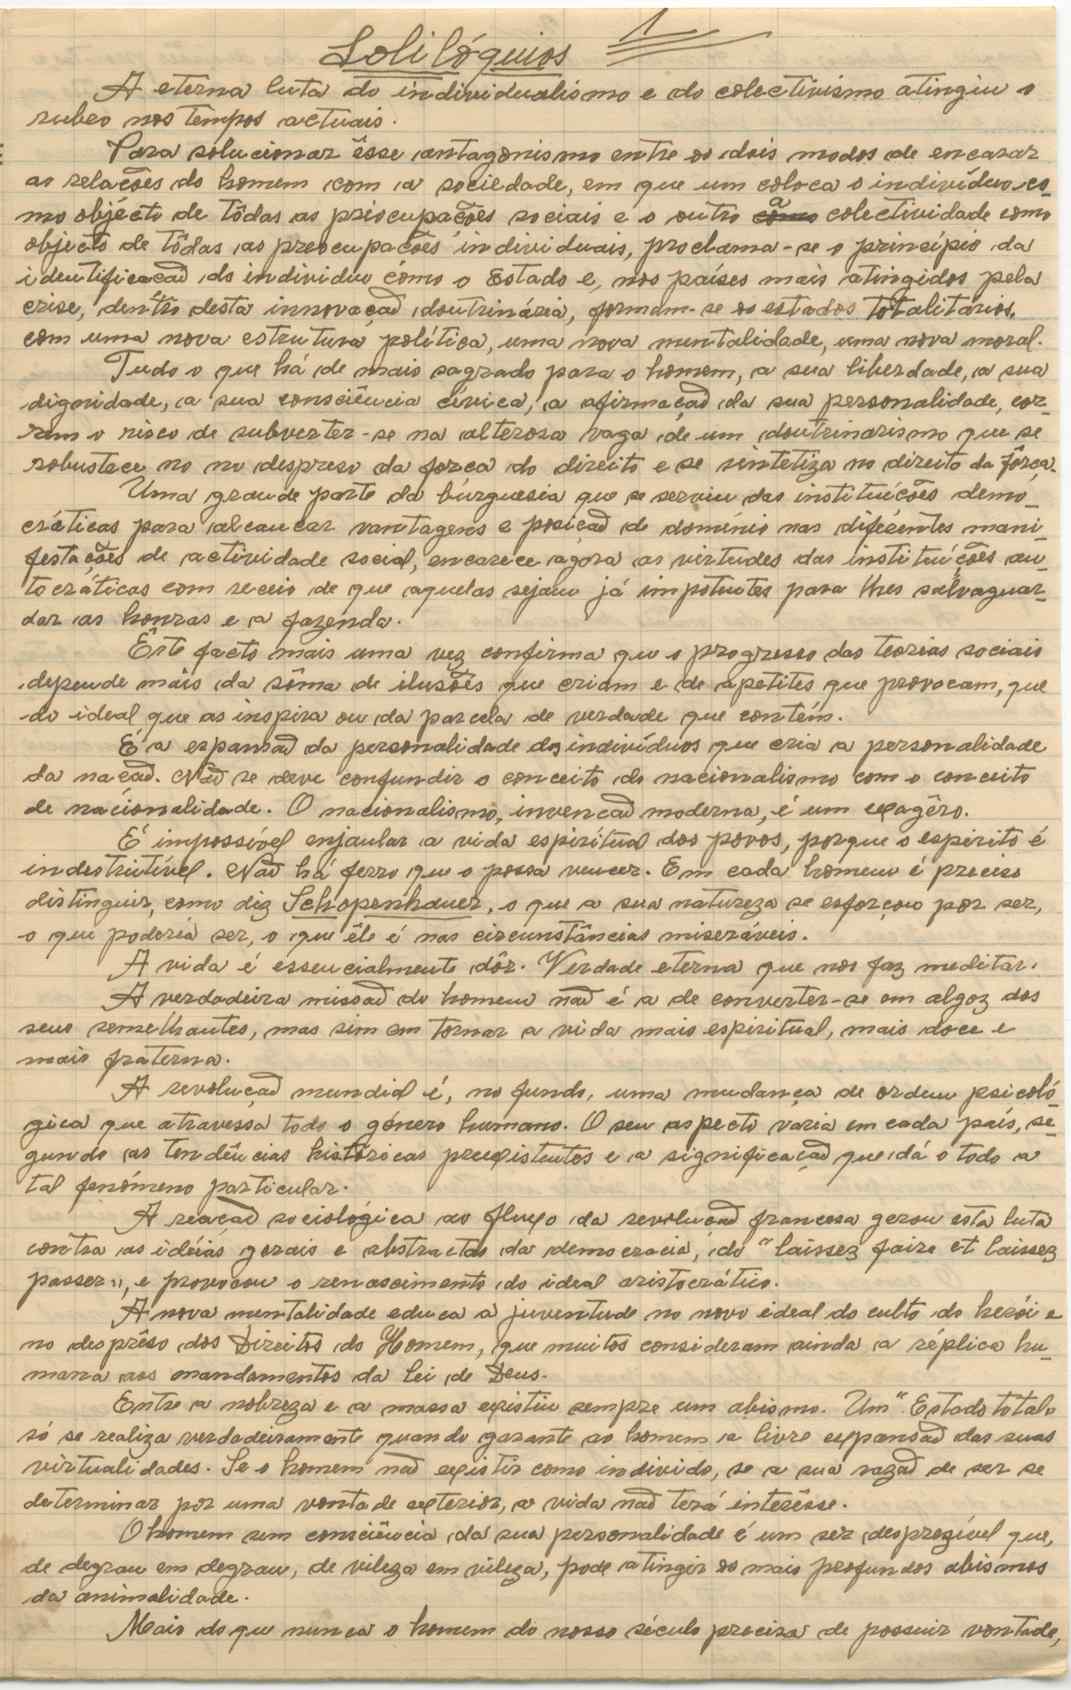 Solilóquios 1
A eterna luta do individualismo e do colectivismo atingiu o
rubro nos tempos actuais.
Para solucionar êsse antagonismo entre os dois modos de encarar
as relações do homem com a sociedade, em que um coloca o indivíduo co-
mo objécto de tôdas as priocupações sociais e o outro a colectividade como
objecto de tôdas as preocupações individuais, proclama-se o princípio da
identificação do individuo como o Estado e, nos países mais atingidos pela
crise, dentro desta innovação doutrinária, formam-se os estados totalitários,
com uma nova estrutura política, uma nova mentalidade, uma nova moral.
Tudo o que há de mais sagrado para o homem, a sua liberdade, a sua
dignidade, a sua consciência cívica, a afirmação da sua personalidade, cor-
rem o risco de subverter-se na alterosa vaga de um doutrinarismo que se
robustece no no despreso da força do direito e se sintetiza no direito da fôrça.
Uma grande parte da burguesia que se serviu das instituíções demo-
cráticas para alcançar vantagens e posição de domínio nas diferentes mani-
festações de actividade social, encarece agora as virtudes das instituíções au-
tocráticas com receio de que aquelas sejam já impotentes para lhes salvaguar-
dar as honras e a fazenda.
Êste facto mais uma vez confirma que o progresso das teorias sociais
depende mais da sôma de ilusões que criam e de apetites que provocam, que
do ideal que as inspira ou da parcela de verdade que contém.
É a expansão da personalidade dos indivíduos que cria a personalidade
da nação. Não se deve confundir o conceito do nacionalismo com o conceito
de nacionalidade. O nacionalismo, invenção moderna, é um exagêro.
É impossível enjaular a vida espiritual dos povos, porque o espirito é
indestrutível. Não há ferro que o possa vencer. Em cada homem é preciso
distinguir, como diz Schopenhauer, o que a sua natureza se esforçou por ser,
o que poderia ser, o que êle é nas circunstâncias miseráveis.
A vida é essencialmente dôr. Verdade eterna que nos faz meditar.
A verdadeira missão do homem não é a de converter-se em algoz dos
seus semelhantes, mas sim em tornar a vida mais espiritual, mais doce e
mais fraterna.
A revolução mundial é, no fundo, uma mudança de ordem psicoló-
gica que atravessa todo o género humano. O seu aspecto varia em cada país, se-
gundo as tendências históricas preexistentes e a significação que dá o todo a
tal fenómeno particular.
A reacção sociológica ao fluxo da revolução francesa gerou esta luta
contra as idéias gerais e abstractas da democracia, do "laissez faire et laissez
passer", e provocou o renascimento do ideal aristocrático.
A nova mentalidade educa a juventude no novo ideal do culto do herói e
no desprêso dos Direitos do Homem, que muitos consideram ainda a réplica hu-
mana aos mandamentos da Lei de Deus.
Entre a nobreza e a massa existiu sempre um abismo. Um "Estado total"
só se realiza verdadeiramente quando garante ao homem a livre expansão das suas
virtualidades. Se o homem não existir como individo, se a sua razão de ser se
determinar por uma vontade exterior, a vida não terá interêsse.
O homem sem consciência da sua personalidade é um ser desprezível que,
de degrau em degrau, de vileza em vileza, pode atingir os mais profundos abismos
da animalidade.
Mais do que nunca o homem do nosso século precisa de possuir vontade,